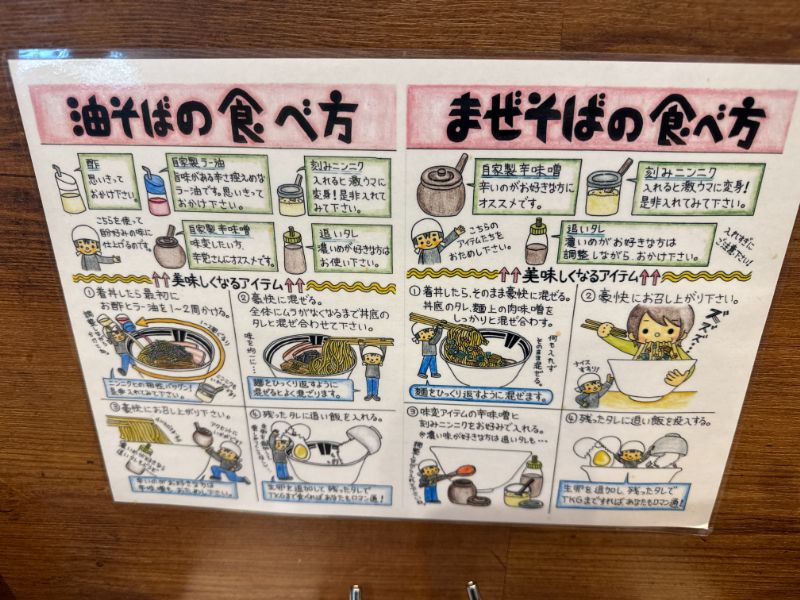 油そばの食べ方
酢
思いきって
おかけ下さい。
自家製ラー油
旨味がある辛さ控えめな
ラー油です。思いきって
おかけ下さい。
刻みニンニク
入れると激ウマに
変身!是非入れて
みて下さい。
こちらを使って
自分好みの味に
仕上げるのです。
自家製辛味噌
味変したい方、
辛党さんにオススメです。
追いタレ
濃いめが好きな方は
お使い下さい。
美味しくなるアイテム
①着丼したら最初に
お酢とラー油を1~2周かける。
1~2周ぐるり
ニンニクとの相性バツグン!
是非入れてみて下さい。
②豪快に混ぜる。
全体にムラがなくなるまで丼底の
タレと混ぜ合わせて下さい。
味を均一に…
麺をひっくり返すように
混ぜるとよく混ざります。
③豪快にお召し上がり下さい。
アクセントに
④残ったタレに追い飯を入れる。
生卵を追加して残ったタレで
TKGまで食べればあなたもロマン通!
まぜそばの食べ方
自家製辛味噌
辛いのがお好きな方に
オススメです。
刻みニンニク
入れると激ウマに変身!
是非入れてみて下さい。
こちらの
アイテムたちを
お試め下さい。
追いタレ
濃いめがお好きな方は
調整しながら、おかけ下さい。
入れすぎに
ご注意下さい!
美味しくなるアイテム
①着丼したら、そのまま豪快に混ぜる。
丼底のタレ、麺上の肉味噌を
しっかりと混ぜ合わす。
何も入れず
そのまま混ぜる。
麺をひっくり返すように混ぜます。
②豪快にお召し上がり下さい。
ズズズ~
ナイス
すすり!
③味変アイテムの辛味噌と
刻みニンニクをお好みで入れる。
※濃い味が好きな方は追いタレも…
④残ったタレに追い飯を投入する。
生卵を追加し、残ったタレで
TKGまですれば、あなたもロマン通!